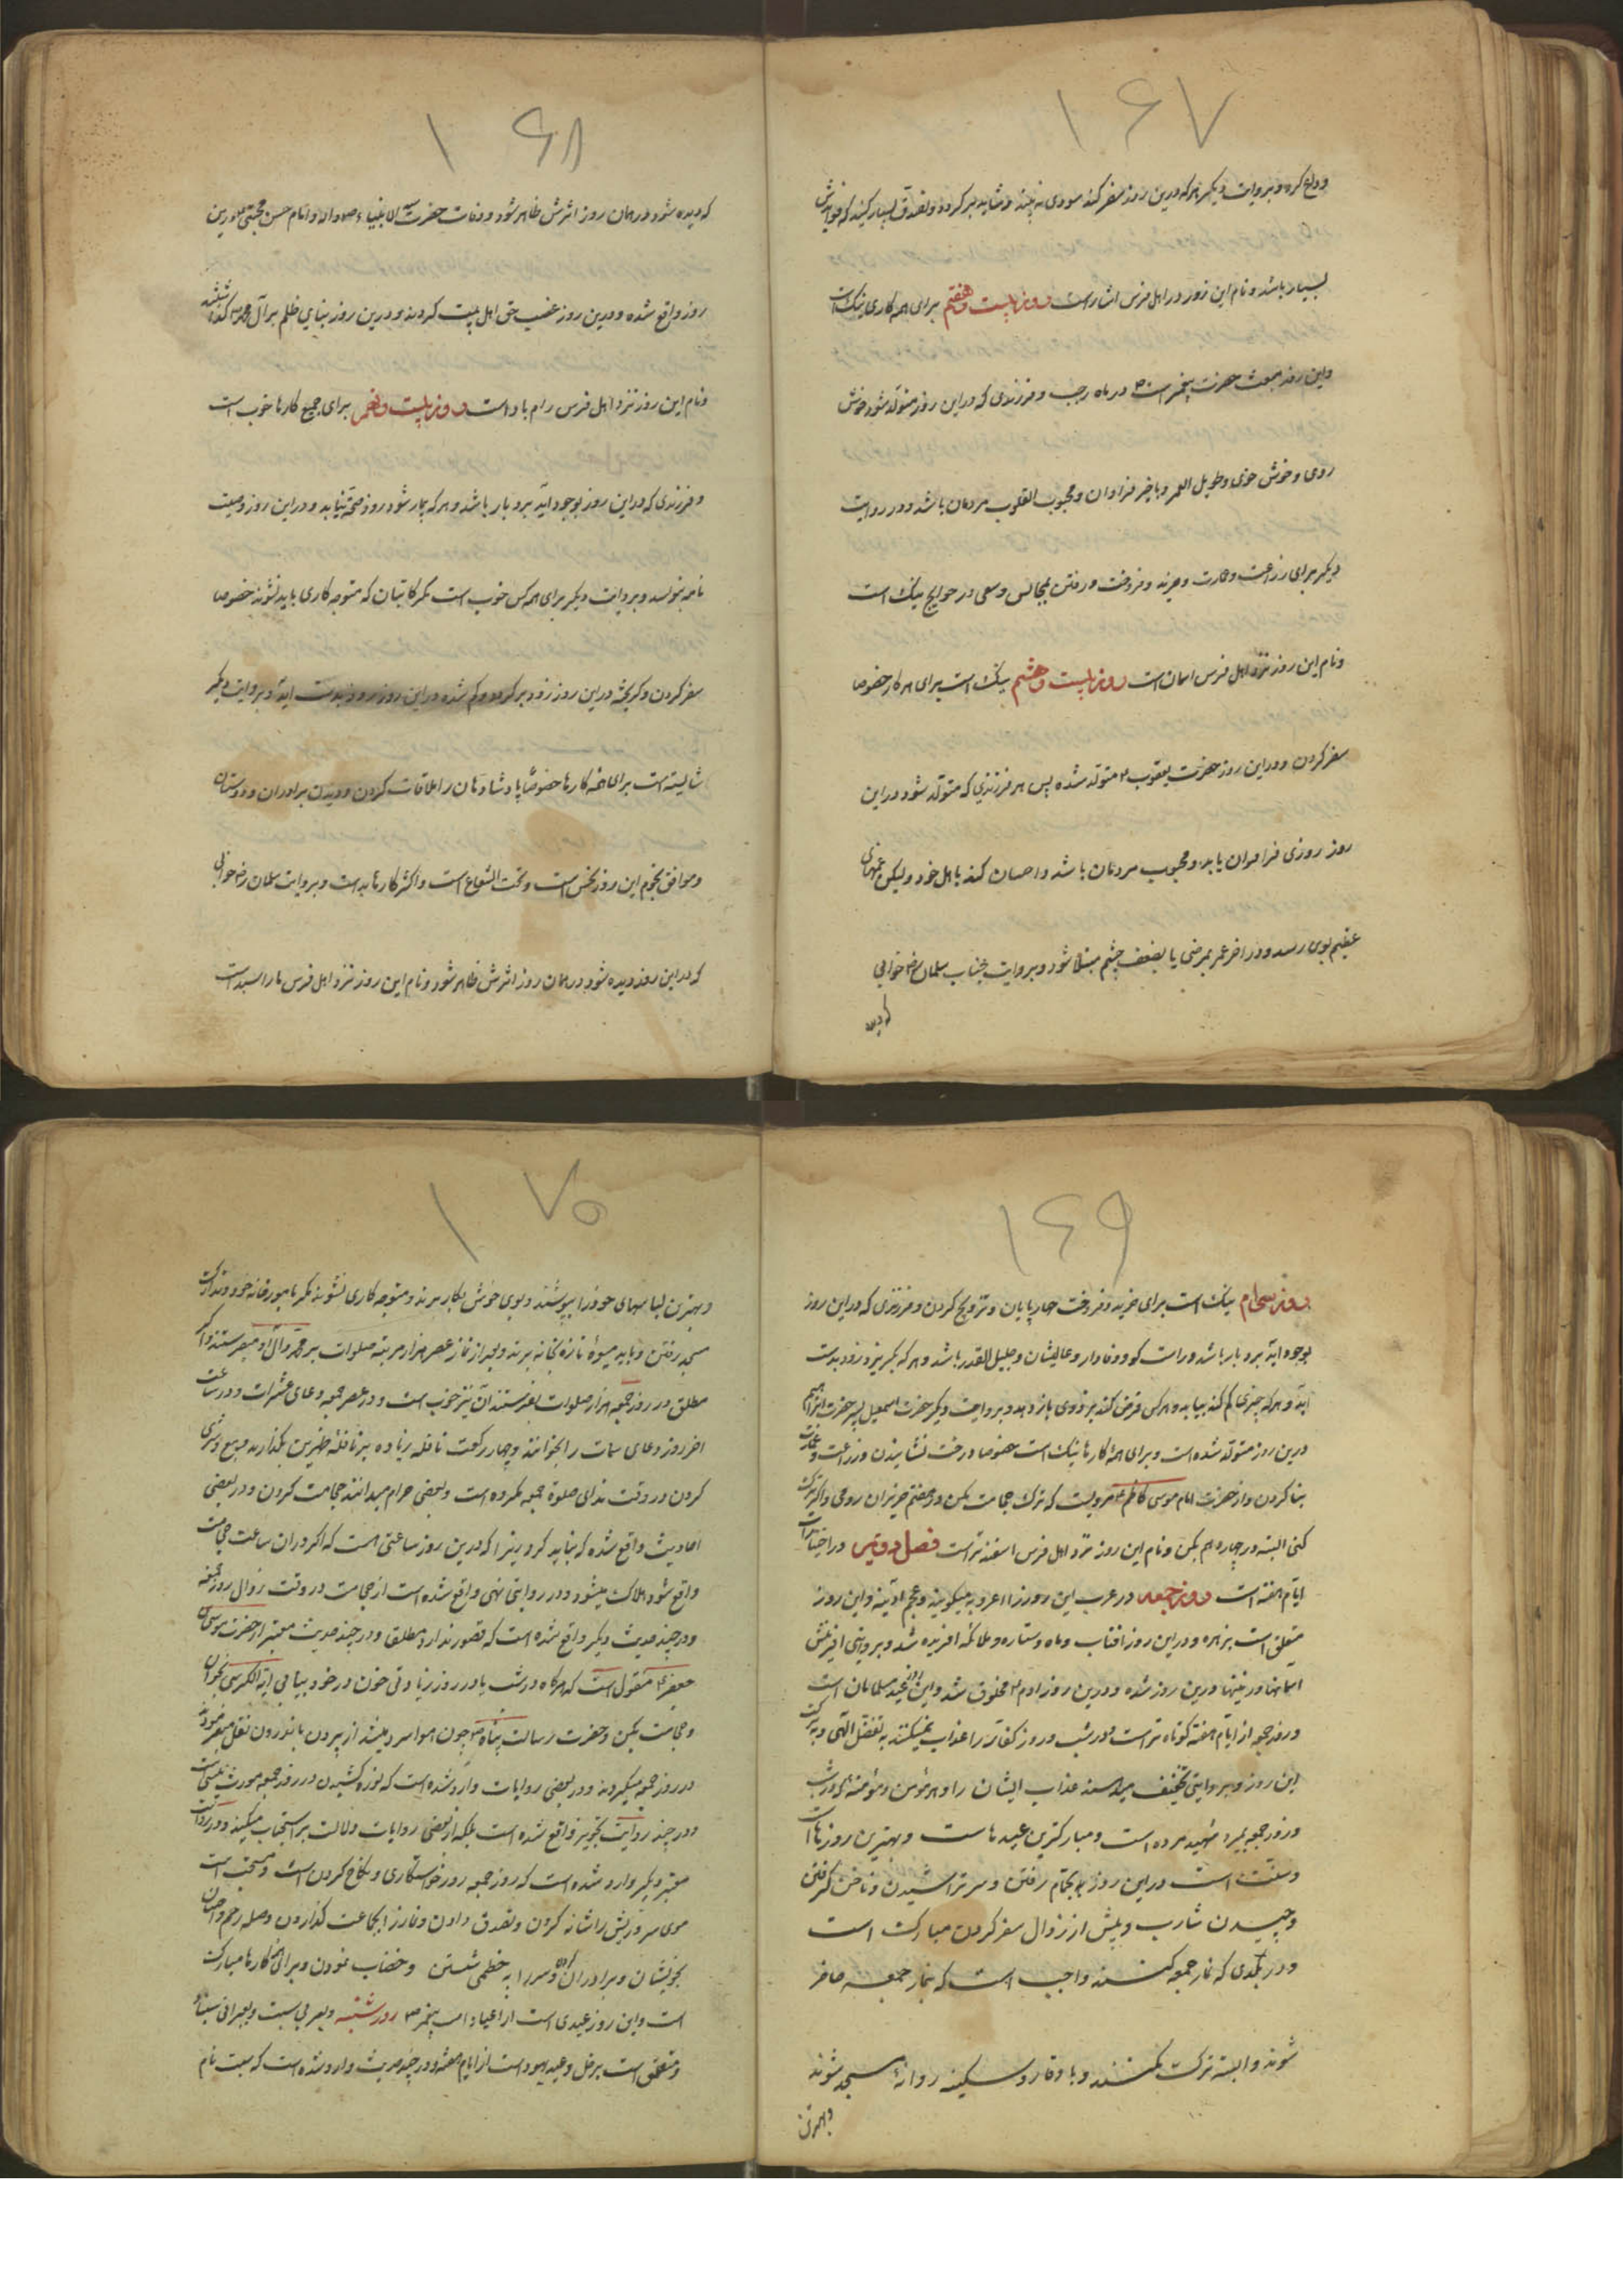 ۱۶۷
و داع کرد و بروایت دیگر هر که درین روز سفر کند سودی نه بیند و شاید برگردد و تصدق بسیار کنید که خواندش
بسیار باشد و نام این روز در اهل فرس اشتاد است روز بیست و هفتم برای همه کاری نیک است
و این روز مبعث حضرت پیغمبر است ص در ماه رجب و فرزندی که در این روز متولد شود خوش
روی و خوش خوی و طویل العمر و با خیر فراوان و محبوب القلوب مردمان باشد و در روایت
دیگر برای زراعت و عمارت و خرید و فروخت و رفتن بمجالس و سعی در حوایج نیک است
و نام این روز نزد اهل فرس اسمان است روز بیست و هشتم نیک است برای هر کار خصوصا
سفر کردن و در این روز حضرت یعقوب ع متولد شده پس هر فرزندی که متولد شود در این
روز روزی فراوان یابد و محبوب مردمان باشد و احسان کند با اهل خود و لیکن غمهای
عظیم بوی رسد و در اخر عمر بمرضی یا بضعف چشم مبتلا شود و بروایت جناب سلمان رض خوابی
که دیده
۱۶۸
که دیده شود در همان روز اثرش ظاهر شود و وفات حضرت سید الانبیاء و امام حسن مجتبی ع درین
روز واقع شده و درین روز غصب حق اهل بیت کردند و درین روز بنای ظلم بر آل محمد ص گذاشتند
و نام این روز نزد اهل فرس رام یاد است روز بیست و نهم برای جمیع کارها خوب است
و فرزندی که در این روز بوجود آید بردبار باشد و هر که بیمار شود زود صحت یابد و در این روز وصیت
نامه بنویسد و بروایت دیگر برای همه کس خوب است مگر کاتبان که متوجه کاری باید نشوند خصوصا
سفر کردن و گریخته در این روز زود برگردد و گم شده در این روز زود بدست آید و بروایت دیگر
شایسته است برای همه کارها خصوصا پادشاهان را ملاقات کردن و دیدن برادران و دوستان
و موافق نجوم این روز نحس است و تحت الشعاع است و اکثر کارها بد است و بروایت سلمان رض خوابی
که در این روز دیده شود در همان روز اثرش ظاهر شود و نام این روز نزد اهل فرس ماراسبند است
۱۶۹
روز سی‌ام نیک است برای خرید و فروخت چارپایان و تزویج کردن و فرزندی که در این روز
بوجود آید بردبار باشد و راست گو و وفادار و عالیشان و جلیل القدر باشد و هر که بگریزد زود بدست
آید و هر که چیزی گم کند بیابد و هر کس قرض کند بزودی باز دهد و بروایت دیگر حضرت اسمعیل پسر حضرت ابراهیم
درین روز متولد شده است و برای همه کارها نیک است خصوصا درخت نشانیدن و زراعت و عمارت
بنا کردن و از حضرت امام موسی کاظم ع مرویست که ترک حجامت مکن در هفتم حزیران رومی و اگر ترک
کنی البته در چهاردهم بکن و نام این روز نزد اهل فرس اسفند تر است فصل دویم در اختیارات
ایام هفته است روز جمعه در عرب این روز را اعروبه میگویند و عجم آدینه و این روز
متعلق است بزهره و در این روز افتاب و ماه و ستاره و ملائکه افریده شد و بروایتی افرینش
اسمانها و زمینها درین روز شده و درین روز ادم ع مخلوق شد و این روز عید مسلمانان است
و روز جمعه از ایام هفته کوتاه تر است در شب و روز کفار را عذاب نمیکنند به تفضل الهی و ببرکت
این روز و بروایتی تخفیف میدهند عذاب ایشان را و هر مؤمن و مؤمنه که در شب
و روز جمعه بمیرد شهید مرده است و مبارکترین عیدهاست و بهترین روزها است
و سنت است در این روز بحمام رفتن و سر تراشیدن و ناخن گرفتن
و چیدن شارب و پیش از زوال سفر کردن مبارک است
و در بلدی که نماز جمعه کنند واجب است که بنماز جمعه حاضر
شوند و البته ترک نکنند و با وقار و سکینه روانه مسجد شوند
و بهترین
۱۷۰
و بهترین لباسهای خود را بپوشند و بوی خوش بکار برند و متوجه کاری نشوند مگر بامور خانه خود و تدارکات
مسجد رفتن و باید میوهٔ تازه بخانه برند و بعد از نماز عصر هزار مرتبه صلوات بر محمد و آل او میفرستند و اگر
مطلق در روز جمعه هزار صلوات بفرستند آن نیز خوب است و در عصر جمعه دعای عشرات و در ساعت
اخر روز دعای سمات را بخوانند و چهار رکعت نافله زیاده بر نافله ظهرین بگذارند و بیع و شری
کردن در وقت ندای صلوة جمعه مکروه است و بعضی حرام میدانند حجامت کردن و در بعضی
احادیث واقع شده که نباید کرد زیرا که درین روز ساعتی هست که اگر در آن ساعت حجامت
واقع شود هلاک میشود و در روایتی نهی واقع شده است از حجامت در وقت زوال روز جمعه
و در چند حدیث دیگر واقع شده است که قصور ندارد مطلق و در چند حدیث معتبر از حضرت موسی بن
جعفر ع منقول است که هر گاه در شب یا در روز زیادتی خون در خود بیابی آیة الکرسی بخوان
و حجامت بکن و حضرت رسالت پناه ص چون هوا سرد میشد از بیرون باندرون نقل میفرمودند
در روز جمعه میکردند و در بعضی روایات وارد شده است که نوره کشیدن در روز جمعه مورث پیسی است
و در چند روایت تجویز واقع شده است بلکه از بعضی روایات دلالت بر استحباب میکند و در روایت
معتبر دیگر وارد شده است که روز جمعه روز خواستگاری و نکاح کردن است و مستحب است
موی سر و ریش را شانه کردن و تصدق دادن و نماز را بجماعت گذاردن و صله رحم و احسان
بخویشان و برادران کردن و سر را به خطمی شستن و خضاب نمودن و برای همه کارها مبارک
است و این روز عیدی است از اعیاد امت پیغمبر ص روز شنبه و بعربی سبت و بعبرانی
و متعلق است بزحل و عید یهود است از ایام هفته و در چند حدیث وارد شده است که سبت نام